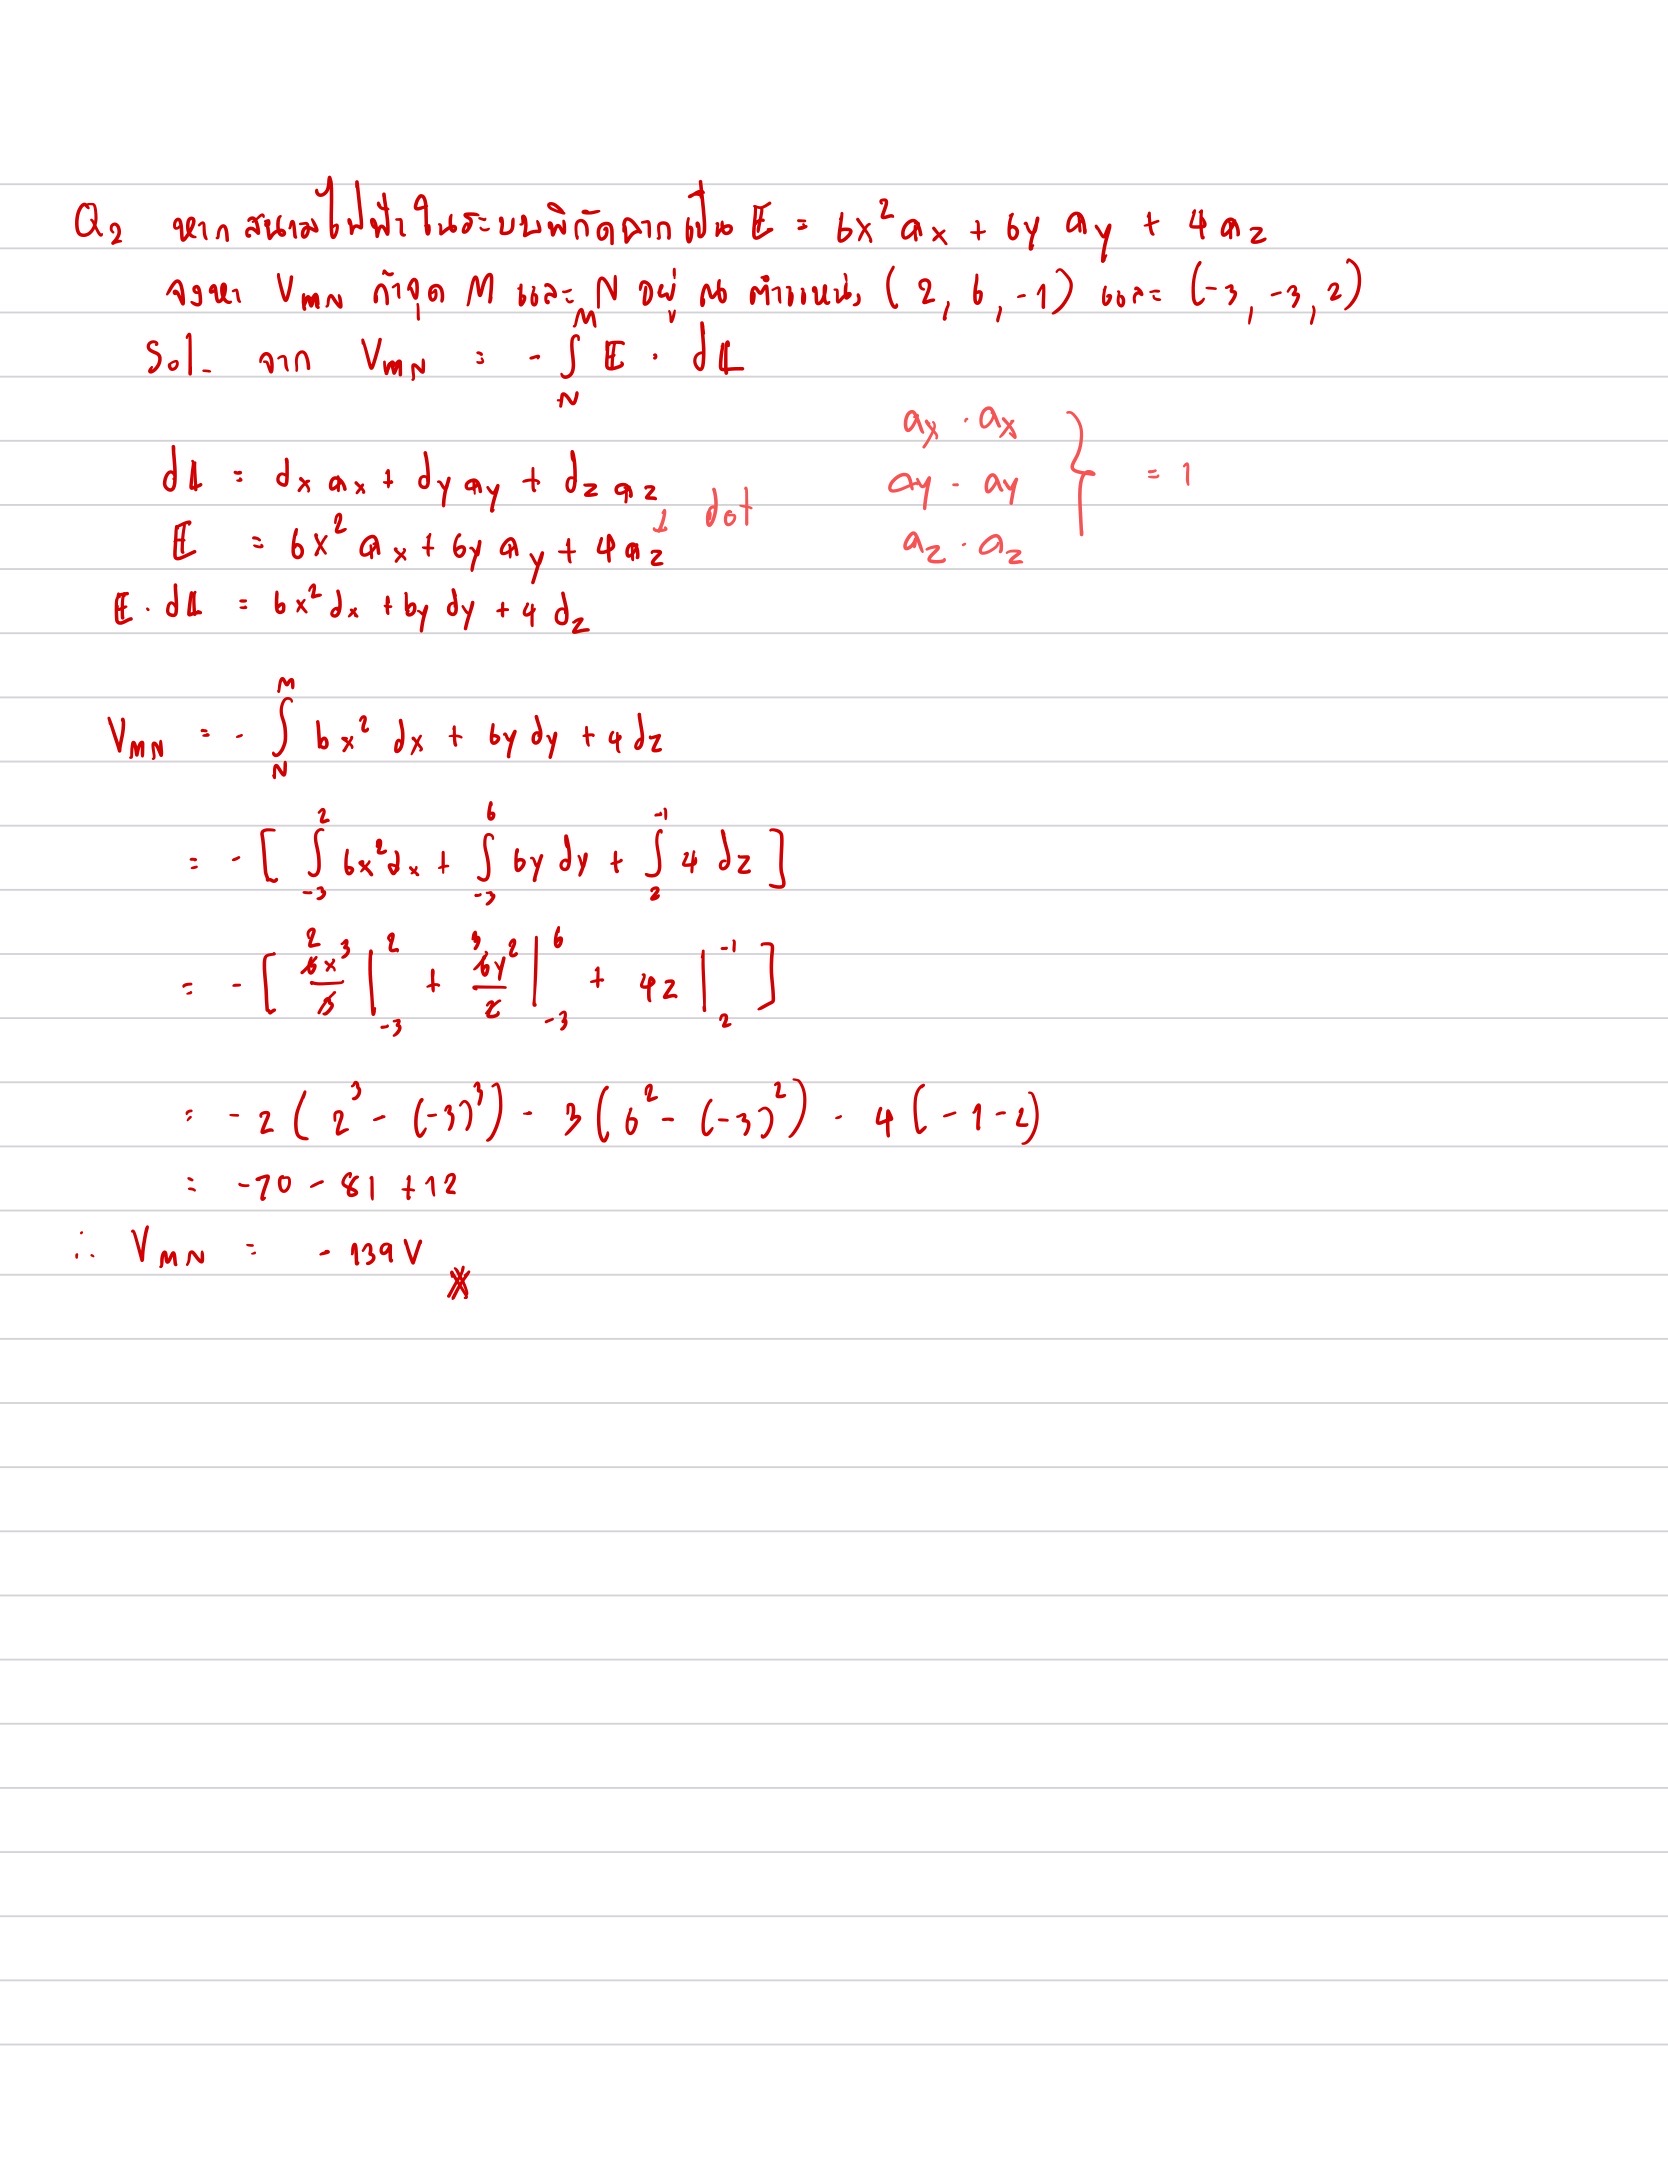 Q₂ หากสนามไฟฟ้าในระบบพิกัดฉากเป็น E = 6x² aₓ + 6y a_y + 4 a_z
จงหา V_MN ถ้าจุด M และ N อยู่ ณ ตำแหน่ง (2, 6, -1) และ (-3, -3, 2)
Sol. จาก V_MN = - ∫_N^M E · dL
a_x · a_x
a_y · a_y } = 1
a_z · a_z
dL = dx a_x + dy a_y + dz a_z
dot
E = 6x² a_x + 6y a_y + 4 a_z
E · dL = 6x² dx + 6y dy + 4 dz
V_MN = - ∫_N^M 6x² dx + 6y dy + 4 dz
= - [ ∫_{-3}^{2} 6x² dx + ∫_{-3}^{6} 6y dy + ∫_{2}^{-1} 4 dz ]
= - [ 2 6x³/3 |_{-3}^{2} + 3 6y²/2 |_{-3}^{6} + 4z |_{2}^{-1} ]
= -2 ( 2³ - (-3)³ ) - 3 ( 6² - (-3)² ) - 4 ( -1 - 2 )
= -70 - 81 + 12
∴ V_MN = -139 V